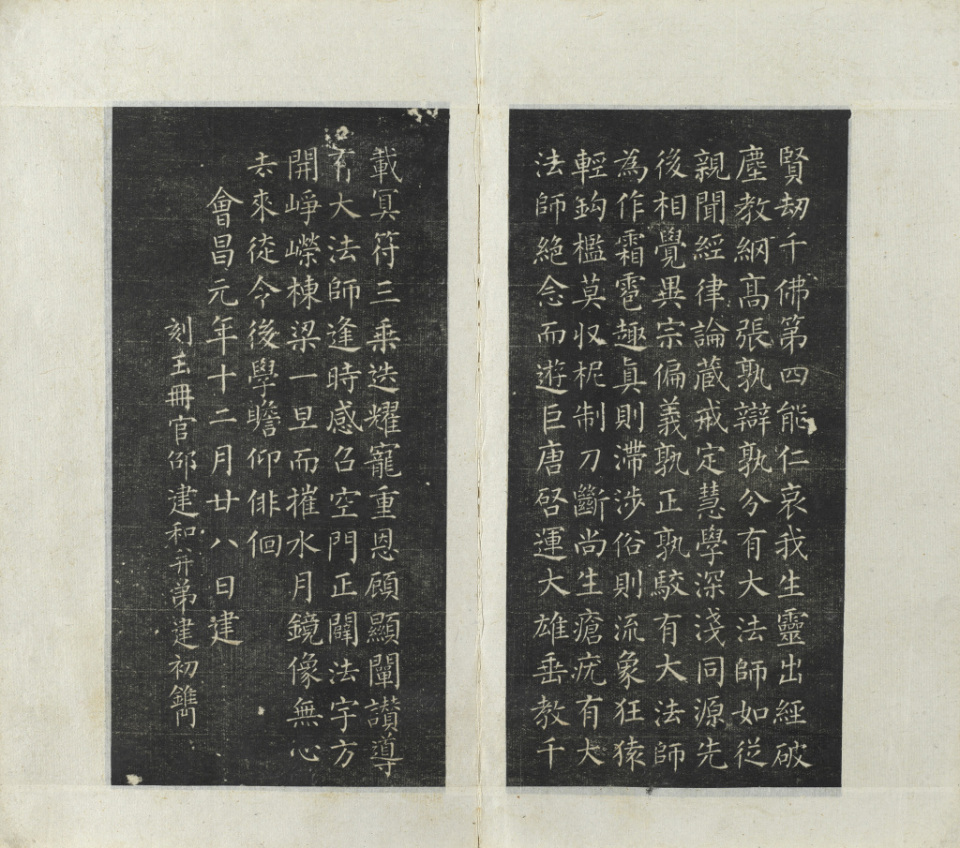 賢劫千佛第四能仁哀我生靈出經破
塵教網高張孰辯孰分有大法師如從
親聞經律論藏戒定慧學深淺同源先
後相覺異宗偏義孰正孰駮有大法師
為作霜雹趣真則滯涉俗則流象狂猿
輕鈎檻莫収柅制刀斷尚生瘡疣有大
法師絕念而遊巨唐啓運大雄垂教千
載冥符三乘迭耀寵重恩顧顯闡讃導
有大法師逢時感召空門正闢法宇方
開崢嶸棟梁一旦而摧水月鏡像無心
去來徒令後學瞻仰俳佪
會昌元年十二月廿八日建
刻玉冊官邵建和并弟建初鐫